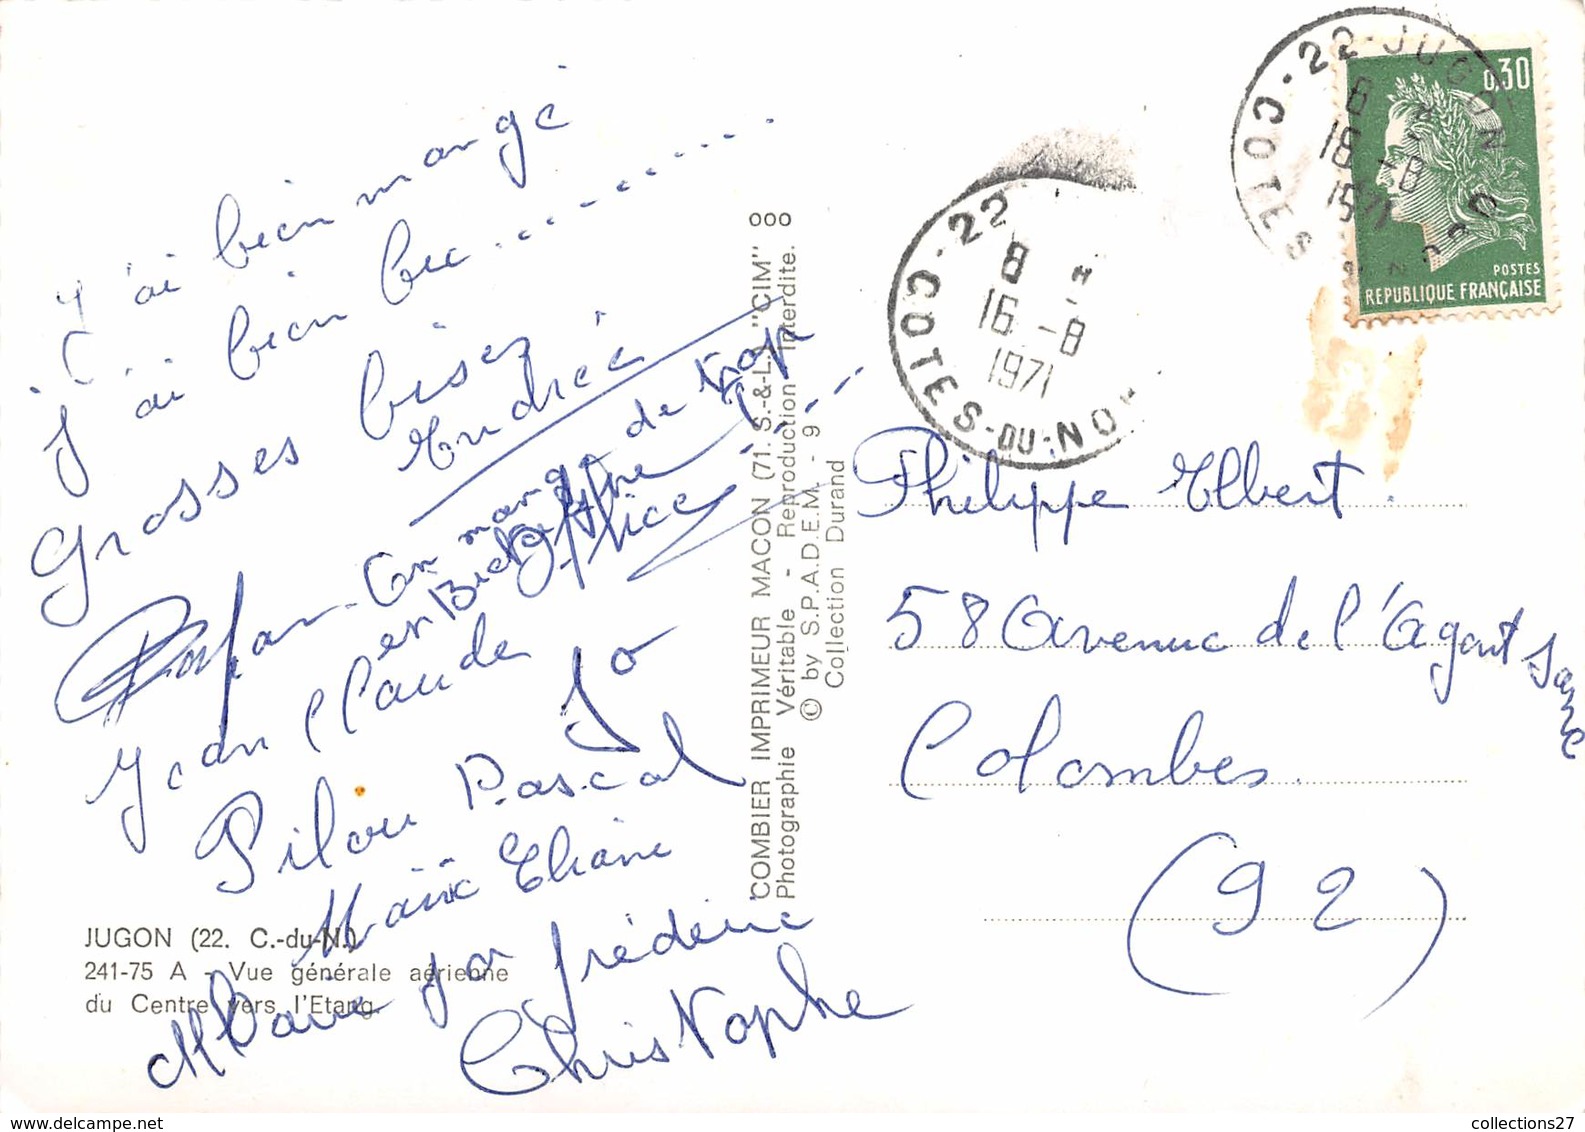 J'ai bien mangé
J'ai bien bu..........
Grosses bises
Andrée
On mange de trop
en
Alice
Jean Claude
Jo
Pilou Pascal
Eliane
Marie Jo Frédéric
Christophe
JUGON (22. C.-du-N.)
241-75 A - Vue générale aérienne
du Centre vers l'Etang.
COMBIER IMPRIMEUR MACON (71. S.-&-L.) "CIM" 000
Photographie Véritable - Reproduction interdite.
© by S.P.A.D.E.M. - 9
Collection Durand
22
8 H
16 -8
1971
COTES-DU-NO
22-JUGON
COTES DU NORD
16 -8
1971
0,30
POSTES
REPUBLIQUE FRANÇAISE
Philippe Elbert.
58 Avenue de l'Agent Sarre
Colombes
(92)
collections27